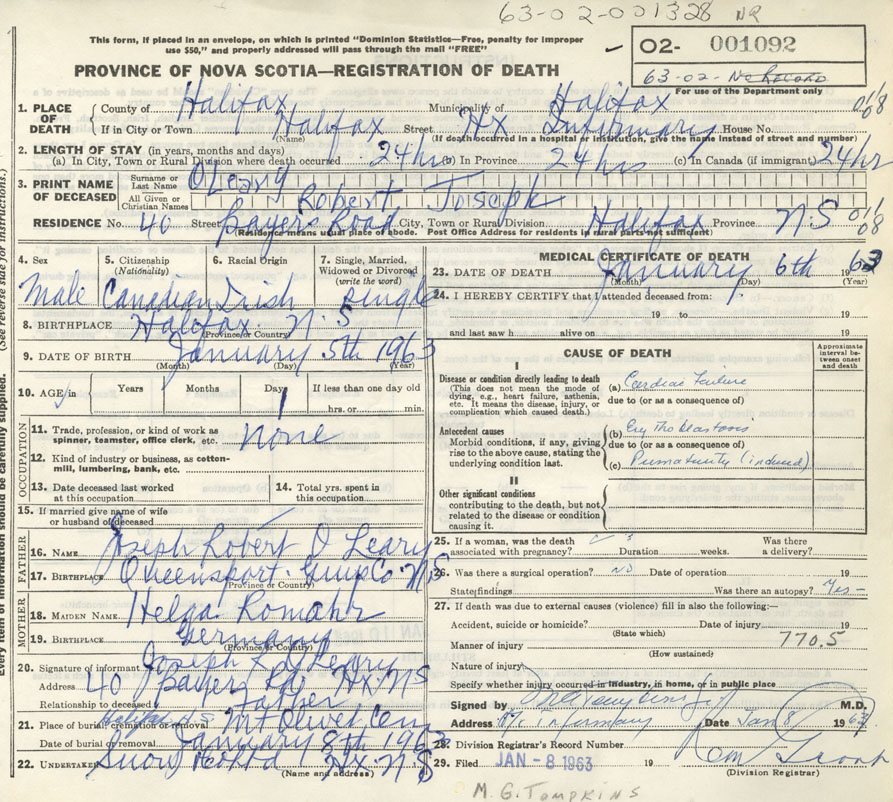 63-02-001328 NR
This form, if placed in an envelope, on which is printed "Dominion Statistics—Free, penalty for improper
use $50," and properly addressed will pass through the mail "FREE"
02- 001092
63-02- No Record
For use of the Department only
PROVINCE OF NOVA SCOTIA—REGISTRATION OF DEATH
1. PLACE OF DEATH County of Halifax Municipality of Halifax
If in City or Town Halifax (Name) Street Hx Infirmary House No.
(If death occurred in a hospital or institution, give the name instead of street and number)
2. LENGTH OF STAY (in years, months and days)
(a) In City, Town or Rural Division where death occurred 24 hrs (b) In Province 24 hrs (c) In Canada (if immigrant) 24 hr
3. PRINT NAME OF DECEASED Surname or Last Name O'Leary
All Given or Christian Names Robert Joseph
RESIDENCE No. 40 Street Bayers Road City, Town or Rural Division Halifax Province N.S
(Residence means usual place of abode. Post Office Address for residents in rural parts not sufficient)
4. Sex Male
5. Citizenship (Nationality) Canadian
6. Racial Origin Irish
7. Single, Married, Widowed or Divorced (write the word) single
8. BIRTHPLACE Halifax N.S
(Province or Country)
9. DATE OF BIRTH January 5th 1963
(Month) (Day) (Year)
10. AGE Years Months Days 1 If less than one day old
hrs. or min.
OCCUPATION
11. Trade, profession, or kind of work as spinner, teamster, office clerk, etc. none
12. Kind of industry or business, as cotton-mill, lumbering, bank, etc.
13. Date deceased last worked at this occupation
14. Total yrs. spent in this occupation
15. If married give name of wife or husband of deceased
FATHER
16. NAME Joseph Robert O'Leary
17. BIRTHPLACE Queensport Guys Co. N.S
(Province or Country)
MOTHER
18. MAIDEN NAME Helga Romahr
19. BIRTHPLACE Germany
(Province or Country)
20. Signature of informant Joseph R O'Leary
Address 40 Bayers Rd Hx NS
Relationship to deceased Father
21. Place of burial, cremation or removal Halifax NS Mt Olivet Cem
Date of burial or removal January 8th 1963
22. UNDERTAKER Snow Hx N S
(Name and address)
MEDICAL CERTIFICATE OF DEATH
23. DATE OF DEATH January 6th 1963
(Month) (Day) (Year)
24. I HEREBY CERTIFY that I attended deceased from:
19 to 19
and last saw h alive on 19
CAUSE OF DEATH
Approximate interval between onset and death
I
Disease or condition directly leading to death
(This does not mean the mode of dying, e.g., heart failure, asthenia, etc. It means the disease, injury, or complication which caused death.)
(a) Cardiac Failure
due to (or as a consequence of)
Antecedent causes
Morbid conditions, if any, giving rise to the above cause, stating the underlying condition last.
(b)
due to (or as a consequence of)
(c) Prematurity (induced)
II
Other significant conditions
contributing to the death, but not related to the disease or condition causing it.
25. If a woman, was the death associated with pregnancy? Duration weeks. Was there a delivery?
26. Was there a surgical operation? NO Date of operation 19
State findings Was there an autopsy? Yes -
27. If death was due to external causes (violence) fill in also the following:—
Accident, suicide or homicide? Date of injury 19
(State which)
Manner of injury 770.5
(How sustained)
Nature of injury
Specify whether injury occurred in industry, in home, or in public place
Signed by M.D.
Address Hx Infirmary Date Jan 8 1963
28. Division Registrar's Record Number
29. Filed JAN - 8 1963 19
(Division Registrar)
M. G. TOMPKINS
Every item of information should be carefully supplied. (See reverse side for instructions.)